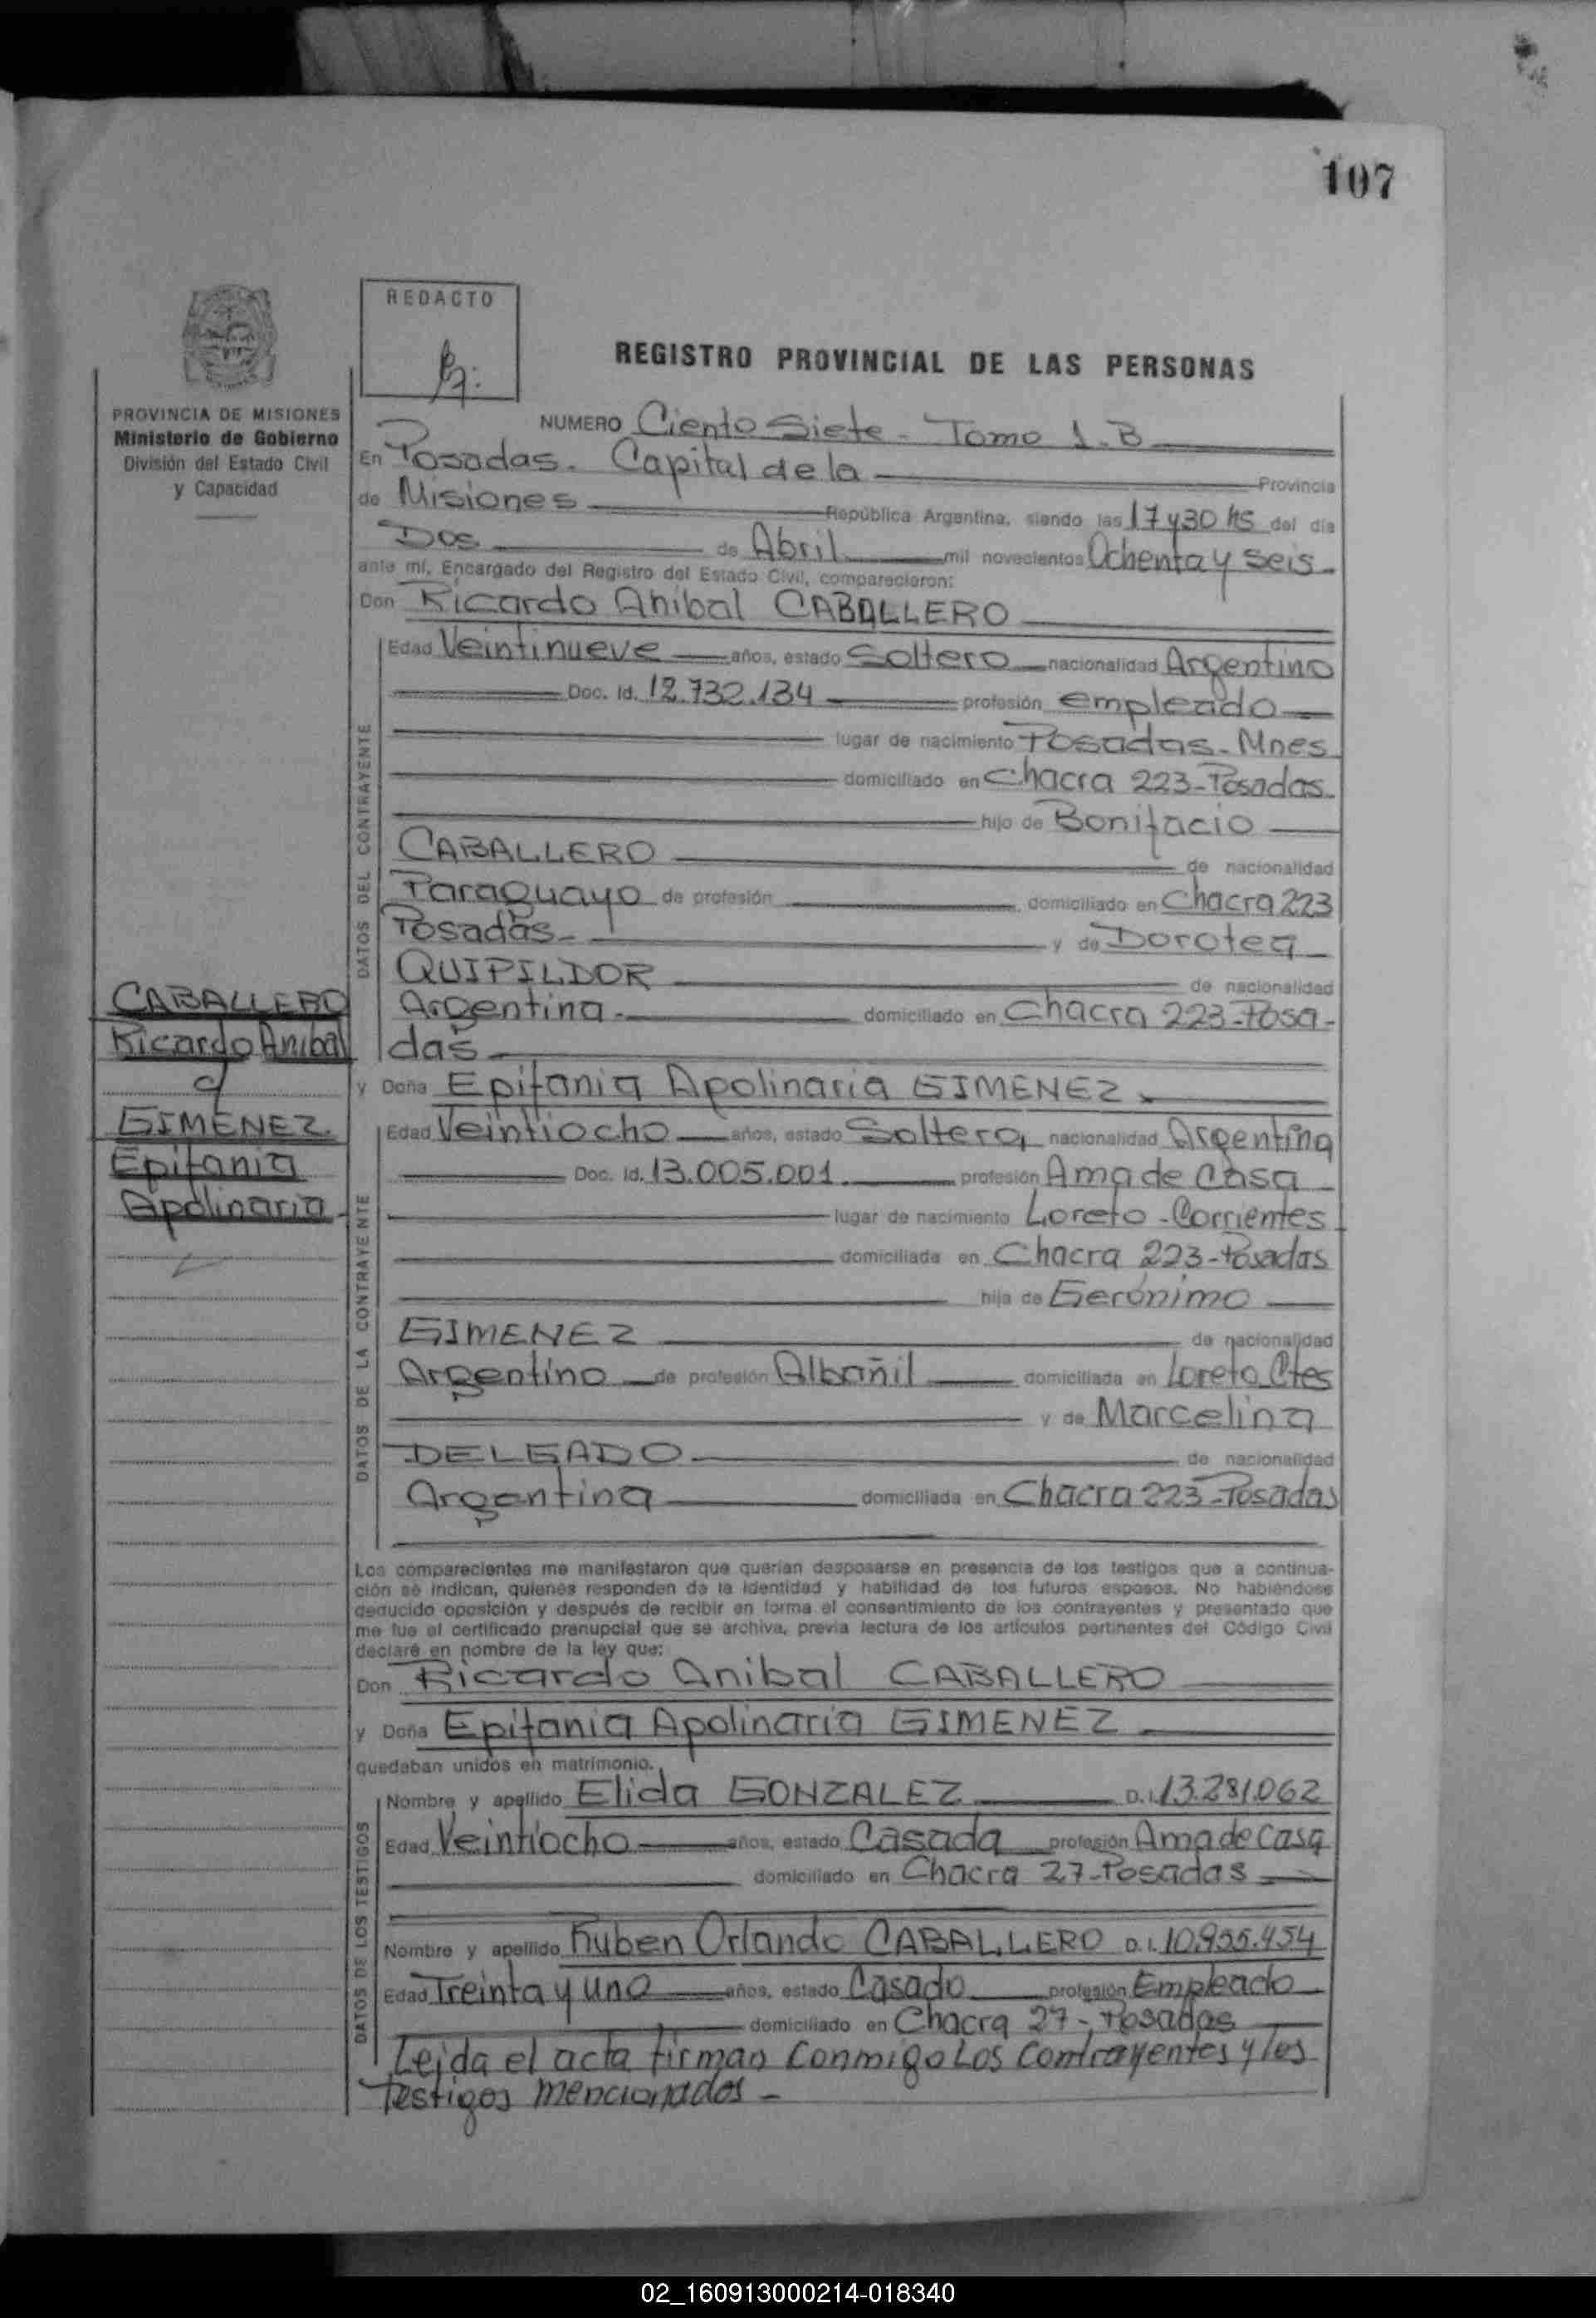 107
REDACTO
REGISTRO PROVINCIAL DE LAS PERSONAS
PROVINCIA DE MISIONES
Ministerio de Gobierno
División del Estado Civil
y Capacidad
NUMERO Ciento Siete - Tomo 1-B
En Posadas. Capital de la Provincia
de Misiones República Argentina, siendo las 17 y 30 hs del día
Dos de Abril mil novecientos Ochenta y seis -
ante mí, Encargado del Registro del Estado Civil, comparecieron:
Don Ricardo Anibal CABALLERO
DATOS DEL CONTRAYENTE
Edad Veintinueve años, estado Soltero nacionalidad Argentino
Doc. Id. 12.732.134 profesión empleado
lugar de nacimiento Posadas - Mnes
domiciliado en Chacra 223 - Posadas
hijo de Bonifacio
CABALLERO de nacionalidad
Paraguayo de profesión domiciliado en Chacra 223
Posadas - y de Dorotea
QUIPILDOR de nacionalidad
Argentina - domiciliado en Chacra 223 - Posa-
das
CABALLERO
Ricardo Anibal
GIMENEZ
Epifania
Apolinaria -
y Doña Epifania Apolinaria GIMENEZ
DATOS DE LA CONTRAYENTE
Edad Veintiocho años, estado Soltera nacionalidad Argentina
Doc. Id. 13.005.001 profesión Ama de Casa
lugar de nacimiento Loreto - Corrientes
domiciliada en Chacra 223 - Posadas
hija de Gerónimo
GIMENEZ de nacionalidad
Argentino de profesión Albañil domiciliada en Loreto Ctes
y de Marcelina
DELGADO de nacionalidad
Argentina domiciliada en Chacra 223 - Posadas
Los comparecientes me manifestaron que querían desposarse en presencia de los testigos que a continua-
ción se indican, quienes responden de la identidad y habilidad de los futuros esposos. No habiéndose
deducido oposición y después de recibir en forma el consentimiento de los contrayentes y presentado que
me fue el certificado prenupcial que se archiva, previa lectura de los artículos pertinentes del Código Civil
declaré en nombre de la ley que:
Don Ricardo Anibal CABALLERO
y Doña Epifania Apolinaria GIMENEZ
quedaban unidos en matrimonio.
DATOS DE LOS TESTIGOS
Nombre y apellido Elida GONZALEZ D.I. 13.281.062
Edad Veintiocho años, estado Casada profesión Ama de Casa
domiciliado en Chacra 27 - Posadas
Nombre y apellido Ruben Orlando CABALLERO D.I. 10.955.454
Edad Treinta y uno años, estado Casado profesión Empleado
domiciliado en Chacra 27 -, Posadas
Leida el acta firman Conmigo Los Contrayentes y los
Testigos mencionados -
02_160913000214-018340